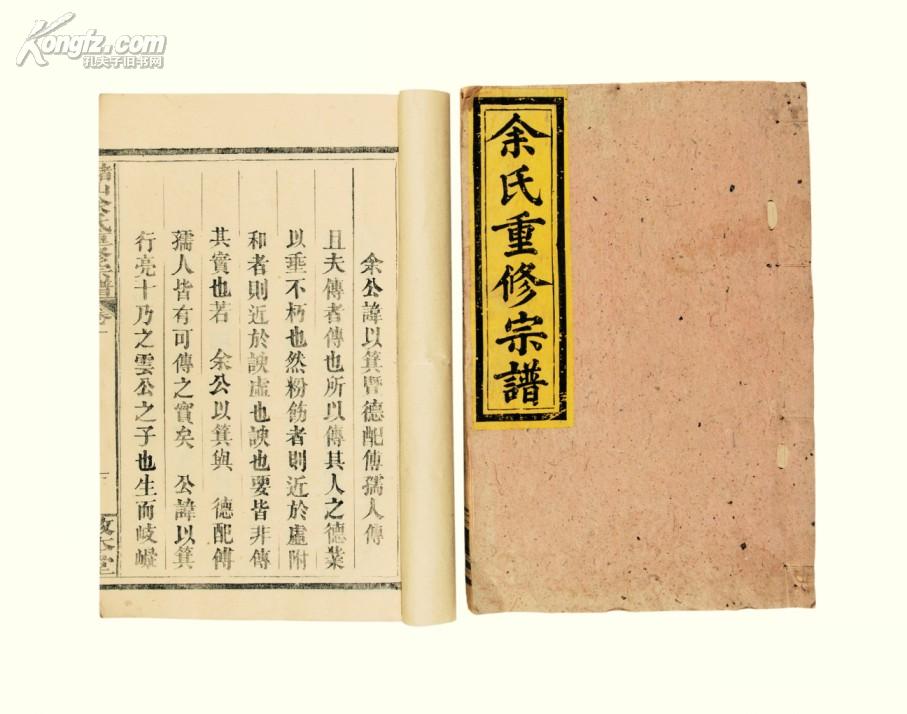 Kongfz.com
孔夫子旧书网
余氏重修宗譜
余公諱以箕暨德配傅孺人傳
且夫傳者傳也所以傳其人之德業
以垂不朽也然粉飾者則近於虛附
和者則近於諛虛也諛也要皆非傳
其實也若 余公以箕與 德配傅
孺人皆有可傳之實矣 公諱以箕
行亮十乃之雲公之子也生而岐嶷
余氏重修宗譜 卷